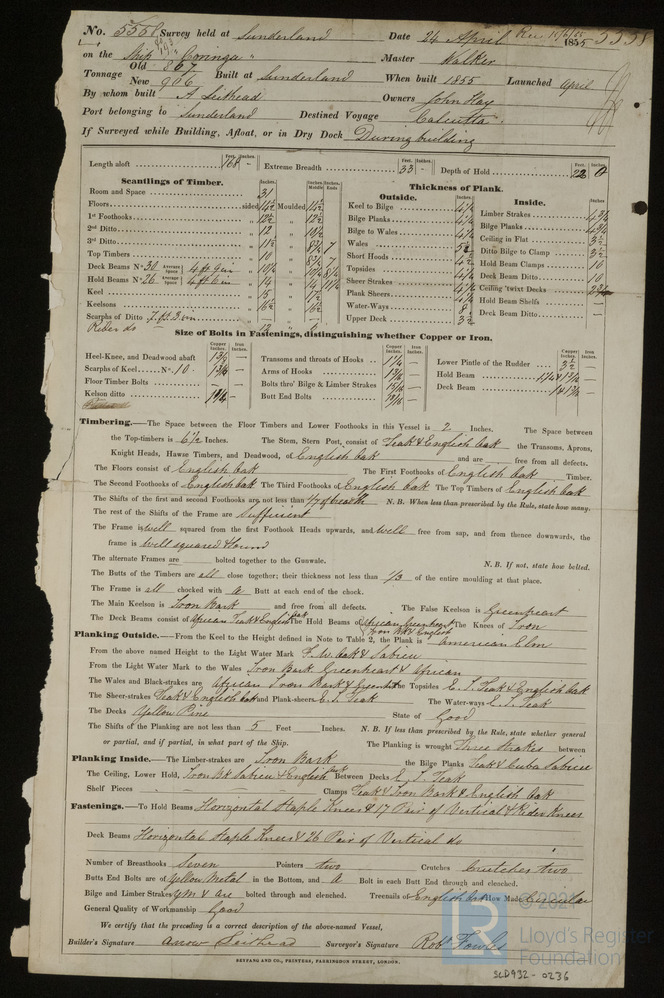 No. 5558 Survey held at Sunderland Date 24 April Rec 1855 5558
on the Ship Coringa " Master Walker
Tonnage Old 867 New 906 Built at Sunderland When built 1855 Launched April
By whom built A Leithead Owners John Hay
Port belonging to Sunderland Destined Voyage Calcutta
If Surveyed while Building, Afloat, or in Dry Dock During building
Length aloft 168 - Extreme Breadth 33 - Depth of Hold 22 0
Scantlings of Timber. Thickness of Plank.
Outside. Inside.
Room and Space 31
Floors sided 14½ Moulded 14½
1st Foothooks 12½ 12½
2nd Ditto 12 10½
3rd Ditto 11½ 8¾ 7
Top Timbers 10 8¾ 7
Deck Beams No. 30 Average Space 4 ft 9 in 10¼ 10¼ 8¼
Hold Beams No. 26 Average Space 4 ft 6 in 14 14 11½
Keel 15 17½
Keelsons 16½ 16½
Scarphs of Ditto 7 ft 3 in
Rider do 12
Keel to Bilge 4¼
Bilge Planks 4¼
Bilge to Wales 4¼
Wales 5½
Short Hoods 4½
Topsides 4¼
Sheer Strakes 4¼
Plank Sheers 4¼
Water-Ways 8
Upper Deck 3½
Limber Strakes 4¾
Bilge Planks 4¾
Ceiling in Flat 3½
Ditto Bilge to Clamp 3½
Hold Beam Clamps 10
Deck Beam Ditto 10
Ceiling 'twixt Decks 2¾
Hold Beam Shelfs -
Deck Beam Ditto -
Size of Bolts in Fastenings, distinguishing whether Copper or Iron.
Copper Inches. Iron Inches. Copper Inches. Iron Inches. Copper Inches. Iron Inches.
Heel-Knee, and Deadwood abaft 1 3/8 - Transoms and throats of Hooks 1¼ - Lower Pintle of the Rudder 3½ -
Scarphs of Keel No. 10 - Arms of Hooks Hold Beam
Floor Timber Bolts - Bolts thro' Bilge & Limber Strakes Deck Beam
Kelson ditto 1¼ - Butt End Bolts
Timbering.—The Space between the Floor Timbers and Lower Foothooks in this Vessel is 2 Inches. The Space between
the Top-timbers is 6½ Inches. The Stem, Stern Post, consist of Teak & English Oak the Transoms, Aprons,
Knight Heads, Hawse Timbers, and Deadwood, of English Oak and are free from all defects.
The Floors consist of English Oak The First Foothooks of English Oak Timber.
The Second Foothooks of English Oak The Third Foothooks of English Oak The Top Timbers of English Oak
The Shifts of the first and second Foothooks are not less than 1/7 of breadth N. B. When less than prescribed by the Rule, state how many.
The rest of the Shifts of the Frame are Sufficient
The Frame is well squared from the first Foothook Heads upwards, and well free from sap, and from thence downwards, the
frame is Well squared & sound
The alternate Frames are bolted together to the Gunwale. N. B. If not, state how bolted.
The Butts of the Timbers are all close together; their thickness not less than 1/3 of the entire moulding at that place.
The Frame is all chocked with a Butt at each end of the chock.
The Main Keelson is Iron Bark and free from all defects. The False Keelson is Greenheart
The Deck Beams consist of African Teak & English Oak The Hold Beams of African Greenheart Iron Bk & English The Knees of Iron
Planking Outside.—From the Keel to the Height defined in Note to Table 2, the Plank is American Elm
From the above named Height to the Light Water Mark F. W. Oak & Sabicu
From the Light Water Mark to the Wales Iron Bark Greenheart & African
The Wales and Black-strakes are African Iron Bark & Greenht the Topsides E. I. Teak & English Oak
The Sheer-strakes Teak & English Oak and Plank-sheers E. I. Teak The Water-ways E. I. Teak
The Decks Yellow Pine State of Good
The Shifts of the Planking are not less than 5 Feet Inches. N. B. If less than prescribed by the Rule, state whether general
or partial, and if partial, in what part of the Ship. The Planking is wrought Three Strakes between
Planking Inside.—The Limber-strakes are Iron Bark the Bilge Planks Teak & Cuba Sabicu
The Ceiling, Lower Hold, Iron Bk Sabicu & English Oak Between Decks E. I. Teak
Shelf Pieces - Clamps Teak & Iron Bark & English Oak
Fastenings.—To Hold Beams Horizontal Staple Knees & 17 Pair of Vertical & Rider Knees
Deck Beams Horizontal Staple Knees & 26 Pair of Vertical do
Number of Breasthooks Seven Pointers two Crutches Crutches two
Butts End Bolts are of Yellow Metal in the Bottom, and A Bolt in each Butt End through and clenched.
Bilge and Limber Strakes YM & are bolted through and clenched. Treenails of English Oak How Made Circular
General Quality of Workmanship Good
We certify that the preceding is a correct description of the above-named Vessel,
Builder's Signature Leithead Surveyor's Signature Robt Fowles
SEYFANG AND CO., PRINTERS, FARRINGDON STREET, LONDON.
LR © 2021
Lloyd's Register
Foundation
SLD932-0236